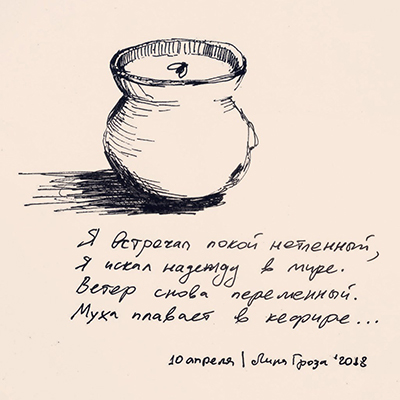 Я встречал покой нетленный,
Я искал надежду в мире.
Ветер снова переменный.
Муха плавает в кефире...
10 апреля | Лина Гроза '2018